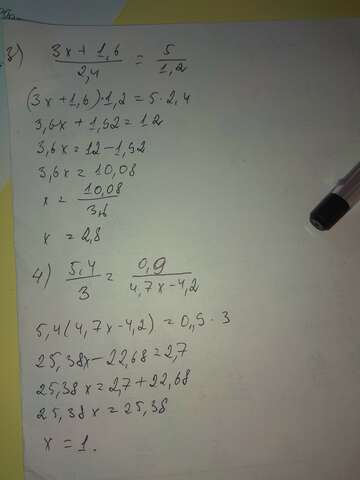 3) (3x + 1,6)/2,4 = 5/1,2
(3x+1,6)·1,2=5·2,4
3,6x + 1,92=12
3,6x=12-1,92
3,6x = 10,08
x = 10,08/3,6
x = 2,8
4) 5,4/3 = 0,9/(4,7x-4,2)
5,4(4,7x-4,2)=0,9·3
25,38x-22,68=2,7
25,38x=2,7+22,68
25,38x=25,38
x = 1.